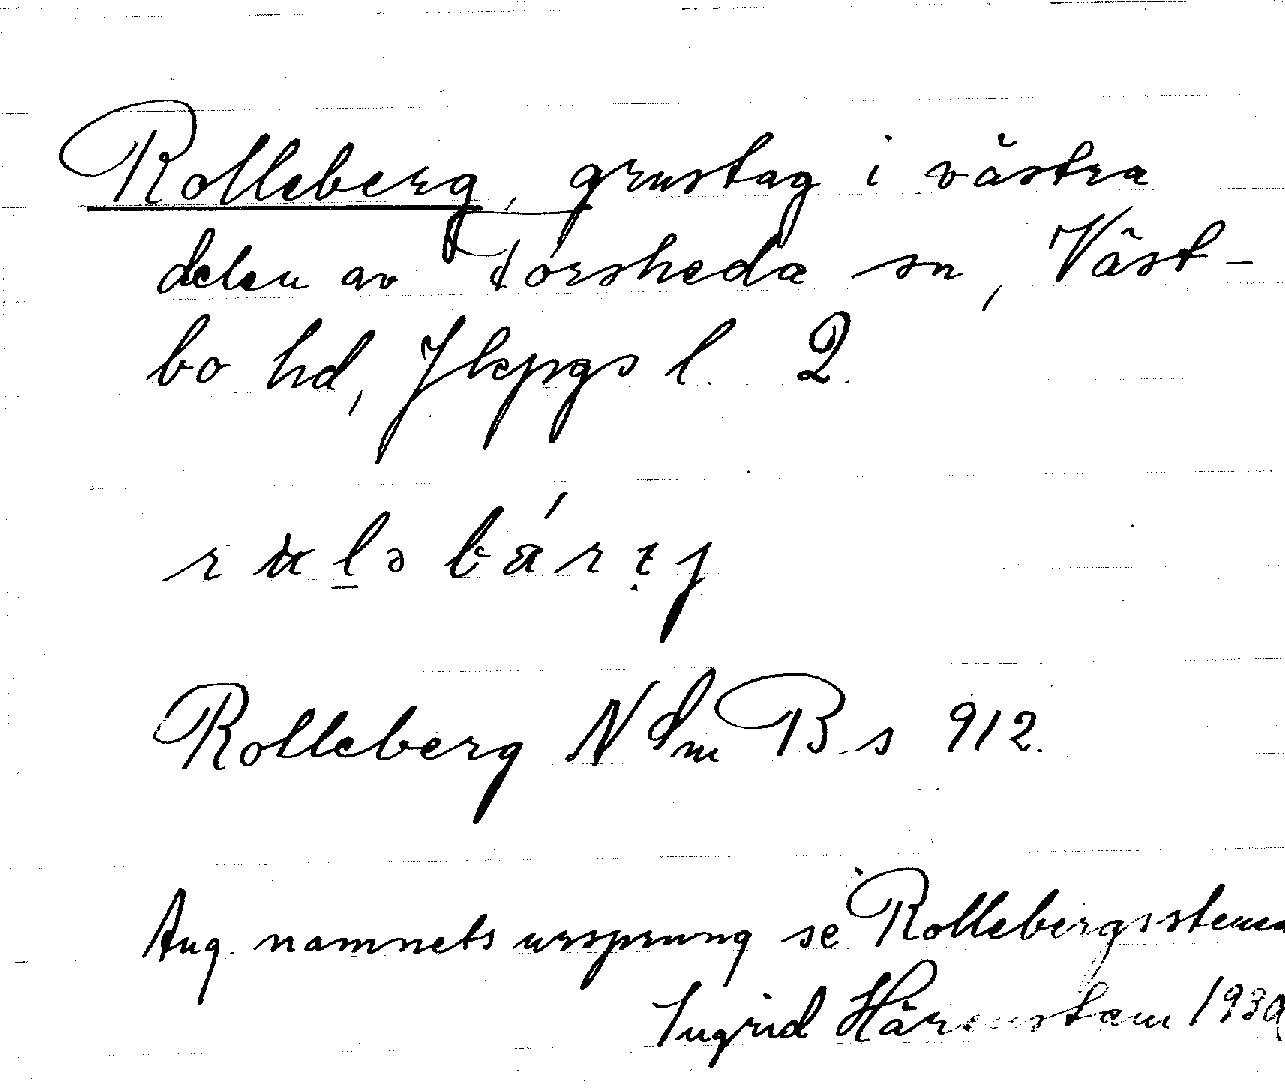 Rolleberg, grustag i västra
delen av Torsheda sn, Väst-
bo hd, Jkpgs l. 2.
Rolleberg N Sm B s 912.
Ang. namnets ursprung se Rollebergsstenen
Ingrid Härenstam 1939